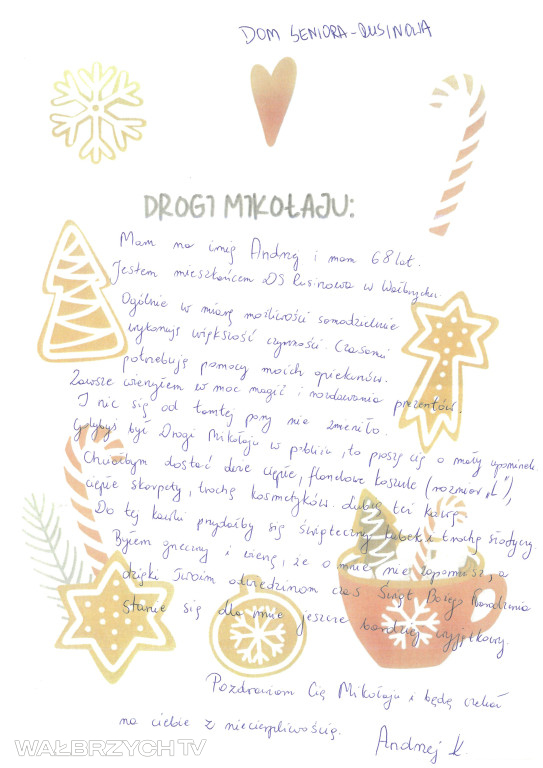 DOM SENIORA-RUSINOWA
DROGI MIKOŁAJU:
Mam na imię Andrzej i mam 68 lat.
Jestem mieszkańcem DS Rusinowa w Wałbrzychu.
Ogólnie w miarę możliwości samodzielnie
wykonuję większość czynności. Czasami
potrzebuję pomocy moich opiekunów.
Zawsze wierzyłem w moc magii i rozdawania prezentów.
I nic się od tamtej pory nie zmieniło.
Gdybyś był Drogi Mikołaju w pobliżu, to proszę cię o mały upominek.
Chciałbym dostać dwie ciepłe, flanelowe koszule (rozmiar "L"),
ciepłe skarpety, trochę kosmetyków. Lubię też kawę.
Do tej kawki przydałby się świąteczny kubek i trochę słodyczy.
Byłem grzeczny i wierzę, że o mnie nie zapomnisz, a
dzięki Twoim odwiedzinom czas Świąt Bożego Narodzenia
stanie się dla mnie jeszcze bardziej wyjątkowy.
Pozdrawiam Cię Mikołaju i będę czekał
na ciebie z niecierpliwością.
Andrzej K.
WAŁBRZYCH TV